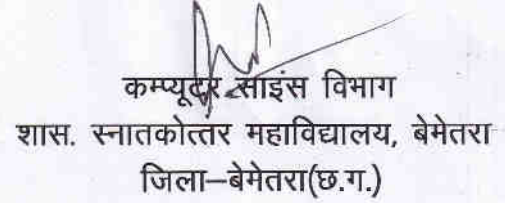 कम्प्यूटर साइंस विभाग
शास. स्नातकोत्तर महाविद्यालय, बेमेतरा
जिला–बेमेतरा(छ.ग.)